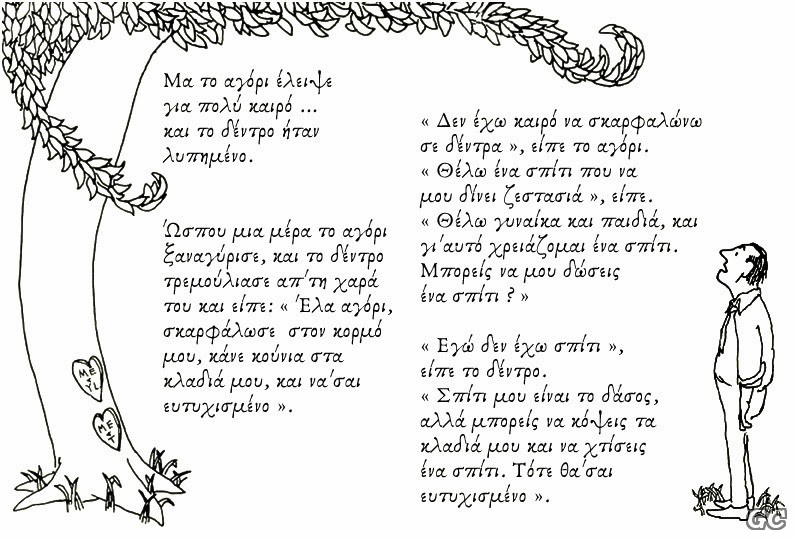 Μα το αγόρι έλειψε
για πολύ καιρό ...
και το δέντρο ήταν
λυπημένο.
Ώσπου μια μέρα το αγόρι
ξαναγύρισε, και το δέντρο
τρεμούλιασε απ'τη χαρά
του και είπε: « Έλα αγόρι,
σκαρφάλωσε στον κορμό
μου, κάνε κούνια στα
κλαδιά μου, και να'σαι
ευτυχισμένο ».
« Δεν έχω καιρό να σκαρφαλώνω
σε δέντρα », είπε το αγόρι.
« Θέλω ένα σπίτι που να
μου δίνει ζεστασιά », είπε.
« Θέλω γυναίκα και παιδιά, και
γι'αυτό χρειάζομαι ένα σπίτι.
Μπορείς να μου δώσεις
ένα σπίτι ? »
« Εγώ δεν έχω σπίτι »,
είπε το δέντρο.
« Σπίτι μου είναι το δάσος,
αλλά μπορείς να κόψεις τα
κλαδιά μου και να χτίσεις
ένα σπίτι. Τότε θα'σαι
ευτυχισμένο ».
M E
Y.L.
M E
T
GC